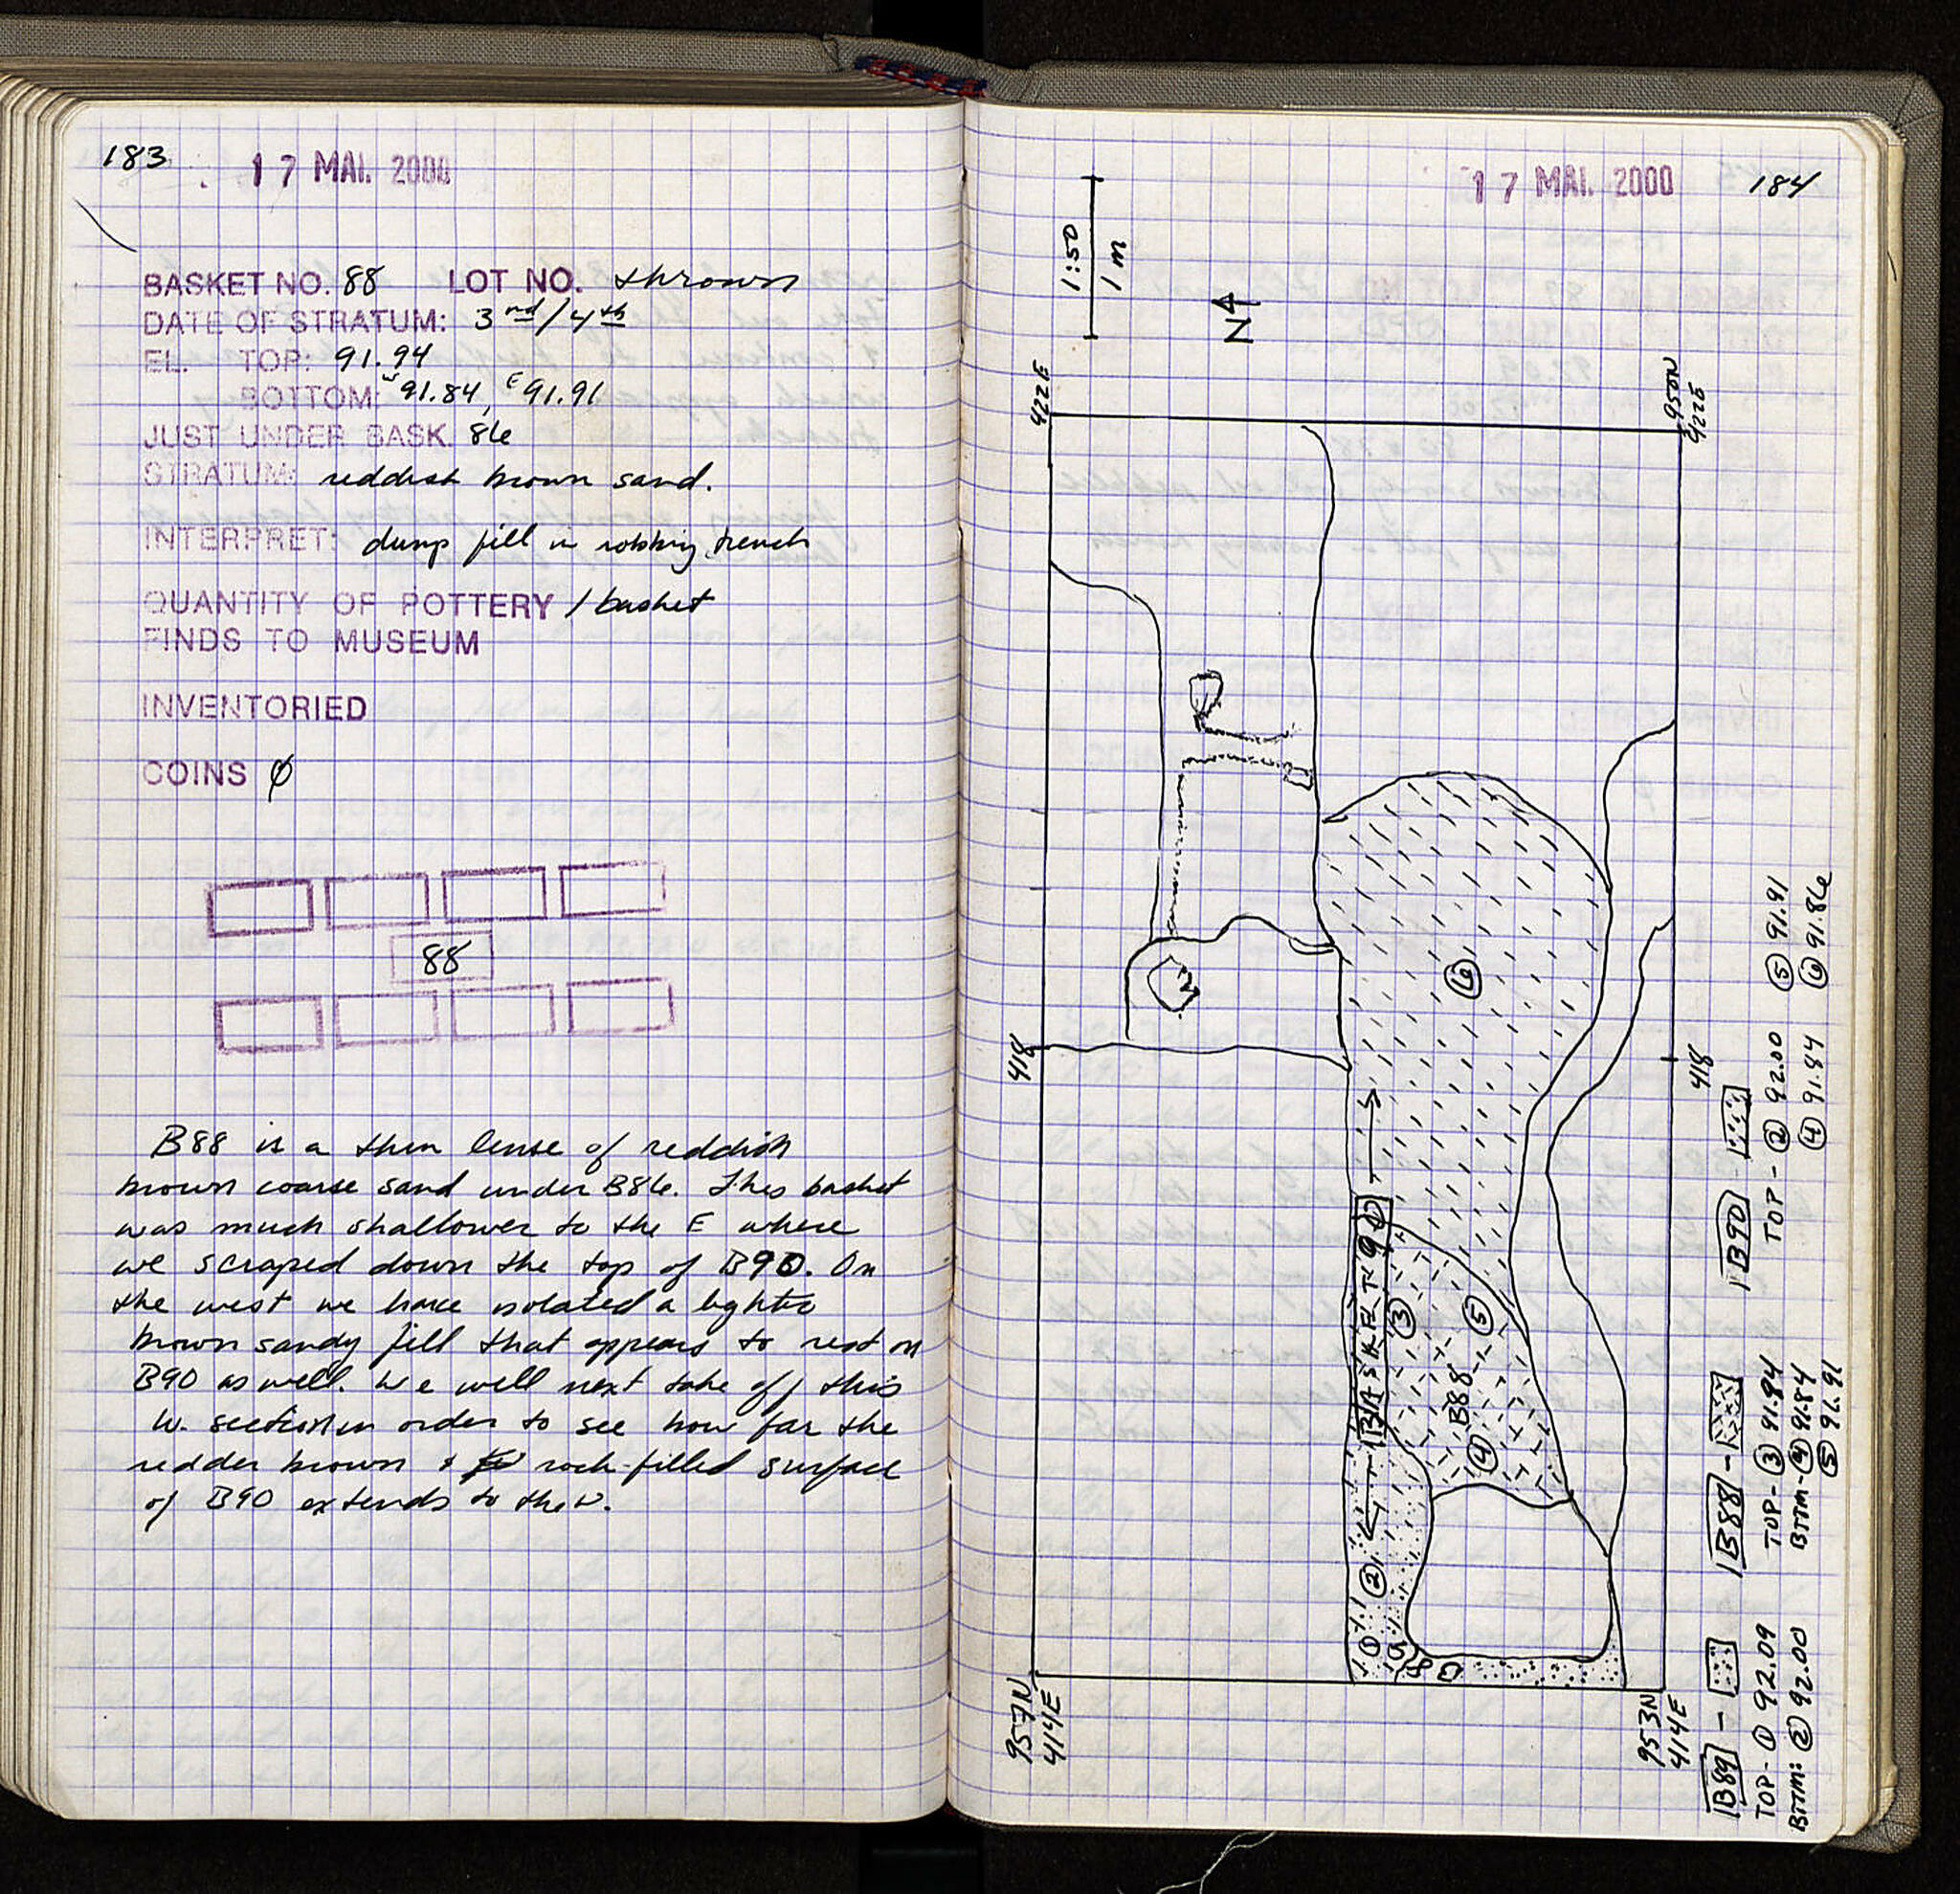 183
17 MAI. 2000
BASKET NO. 88 LOT NO. thrown
DATE OF STRATUM: 3rd/4th
EL. TOP: 91.94
BOTTOM: W 91.84, E 91.91
JUST UNDER BASK. 86
STRATUM: reddish brown sand.
INTERPRET: dump fill in robbing trench
QUANTITY OF POTTERY 1 basket
FINDS TO MUSEUM
INVENTORIED
COINS ∅
88
B88 is a thin lense of reddish
brown coarse sand under B86. This basket
was much shallower to the E where
we scraped down the top of B90. On
the west we have isolated a lighter
brown sandy fill that appears to rest on
B90 as well. We will next take off this
W. section in order to see how far the
redder brown & rock-filled surface
of B90 extends to the W.
17 MAI. 2000
184
1:50
1 m
N
422E
950N
422E
418
418
6
BASKET 90
3
5
B88
4
2
1
B89
957N
414E
953N
414E
B90 -
TOP - ② 92.00 ⑤ 91.91
④ 91.84 ⑥ 91.86
B88 -
TOP - ③ 91.94
BTTM - ④ 91.84
⑤ 91.91
B89 -
TOP - ① 92.09
BTTM: ② 92.00